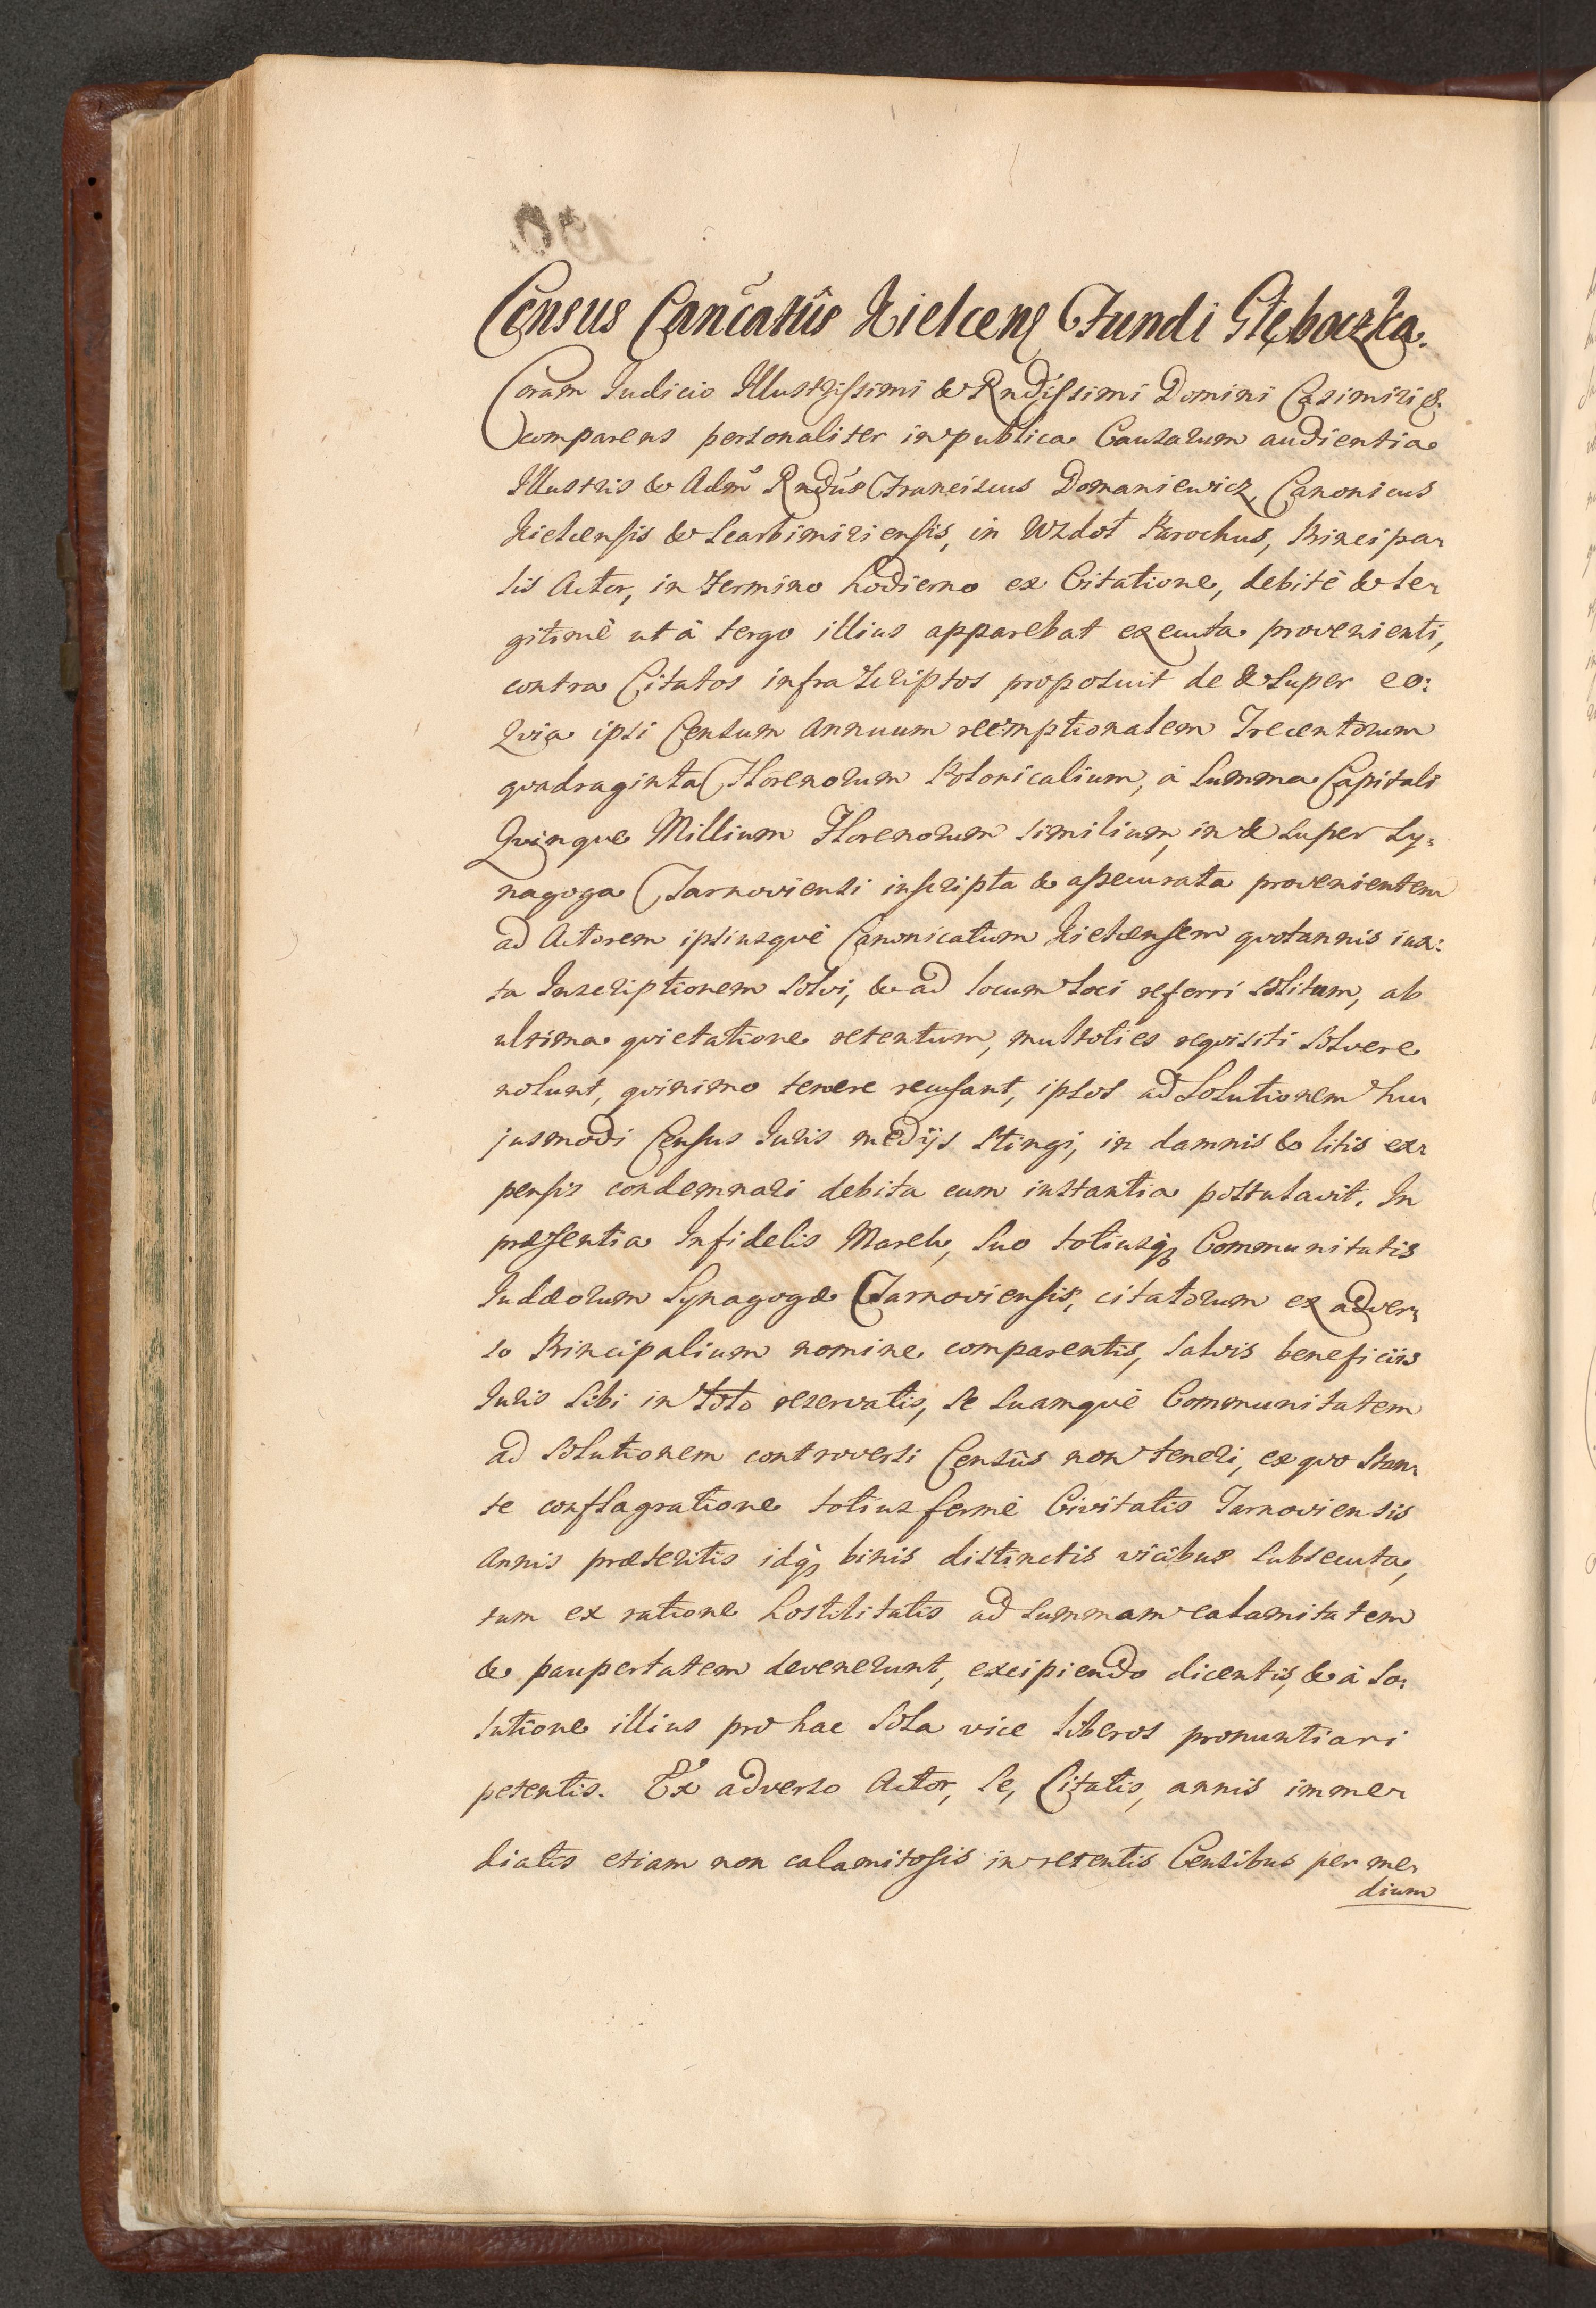 Census Can̄catûs Kielcens Fundi Głęboczka.
Coram Iudicio Illustrissimi & Rndissimi Domini Casimiri &.
comparens personaliter in publica Causarum audientia
Illustris & Adm̄ Rndus Franciscus Domaniewicz, Canonicus
Kielcensis & Scarbimiriensis, in Wzdoł Parochus, Principa-
lis Actor, in termino hodierno ex Citatione, debitè & le-
gitimè ut à tergo illius apparebat executa provenienti,
contra Citatos infra scriptos proposuit de & super eo:
Quia ipsi Censum annuum reemptionalem Trecentorum
quadraginta Florenorum Polonicalium, à summa Capitali
Quinque Millium Florenorum similium, in & super Sy-
nagoga Tarnoviensi inscripta & assecurata provenientem
ad Actorem ipsiusquè Canonicatum Kielcensem quotannis iux-
ta Inscriptionem solvi, & ad locum loci referri solitum, ab
ultima quietatione retentum, multoties requisiti solvere
nolunt, quinimo temere recusant, ipsos ad solutionem hu-
jusmodi Census Iuris medijs stringi, in damnis & litis ex-
pensis condemnari debita cum instantia postulavit. In
præsentia Infidelis Marek, suo totiusq; Communitatis
Iudæorum Synagogæ Tarnoviensis, citatorum ex adver-
so Principalium nomine comparentis, salvis beneficiis
Iuris sibi in toto reservatis, se suamquè Communitatem
ad solutionem controversi Censûs non teneri, ex quo stan-
te conflagratione totius fermè Civitatis Tarnoviensis
annis præteritis idq; binis distinctis vicibus subsecuta,
tum ex ratione hostilitatis ad summam calamitatem
& paupertatem devenerunt, excipiendo dicentis, & à so-
lutione illius pro hac sola vice liberos pronuntiari
petentis. Ex adverso Actor, se, Citatis, annis imme-
diatis etiam non calamitosis in retentis Censibus per me-
dium